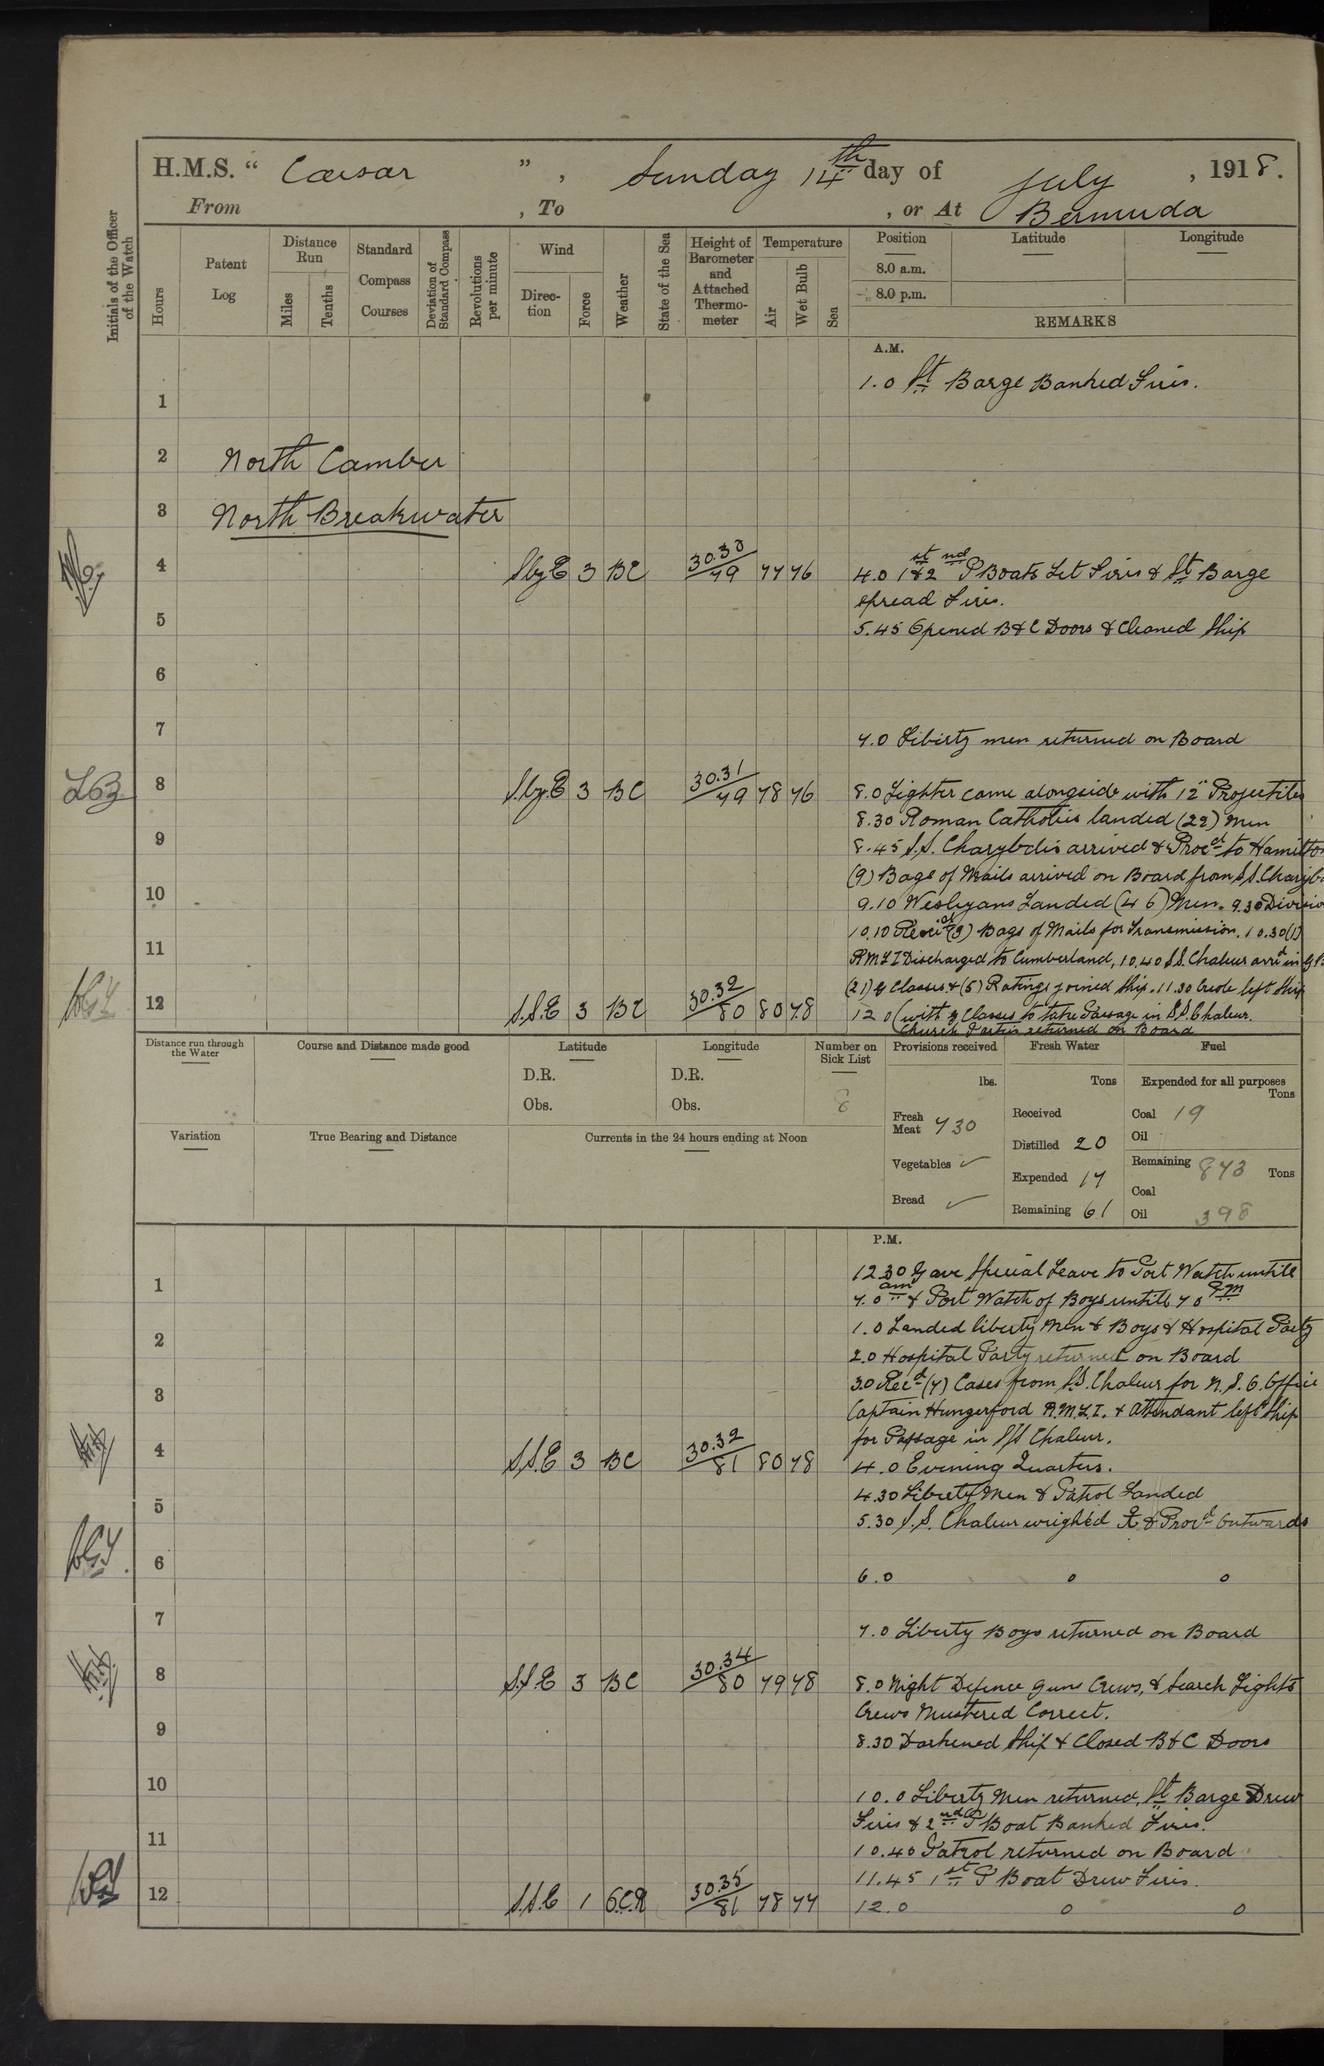 H.M.S. “ Cæsar ” , Sunday 14th day of July , 1918.
From , To , or At Bermuda
Initials of the Officer of the Watch
Hours
Patent Log
Distance Run
Miles
Tenths
Standard Compass Courses
Deviation of Standard Compass
Revolutions per minute
Wind
Direction
Force
Weather
State of the Sea
Height of Barometer and Attached Thermometer
Temperature
Air
Wet Bulb
Sea
Position
Latitude
Longitude
8.0 a.m.
8.0 p.m.
REMARKS
A.M.
1.0 St Barge Banked Fires.
1
2 North Camber
3 North Breakwater
4 S by E 3 BC 30.30/79 77 76 4.0 1st & 2nd P Boats Let Fires & St Barge
spread Fires.
5 5.45 Opened B & C Doors & Cleaned Ship
6
7 7.0 Liberty men returned on Board
8 S. by E 3 BC 30.31/79 78 76 8.0 Lighter came alongside with 12" Projectiles
8.30 Roman Catholics landed (22) Men
9 8.45 S.S. Charybdis arrived & Procd to Hamilton
(9) Bags of Mails arrived on Board from S.S. Charyb
10 9.10 Wesleyans Landed (46) Men. 9.30 Divisio
10.10 Recd (3) Bags of Mails for Transmission. 10.30 (1)
11 RMLI Discharged to Cumberland, 10.40 S.S. Chaleur arrd in G B
(21) G Classes & (5) Ratings joined Ship. 11.30 Creole left Ship
12 S.S.E 3 BC 30.32/80 80 78 12.0 (with G Classes to take Passage in S.S. Chaleur.
Church Parties returned on Board
Distance run through the Water
Course and Distance made good
Latitude
D.R.
Obs.
Longitude
D.R.
Obs.
Number on Sick List
8
Provisions received
lbs.
Fresh Meat 730
Vegetables ✓
Bread ✓
Fresh Water
Tons
Received
Distilled 20
Expended 17
Remaining 61
Fuel
Expended for all purposes
Tons
Coal 19
Oil
Remaining 873 Tons
Coal
Oil 398
Variation
True Bearing and Distance
Currents in the 24 hours ending at Noon
P.M.
12.30 Gave Special Leave to Port Watch untill
1 7.0 am & Port Watch of Boys untill 7 0 PM
1.0 Landed liberty Men & Boys & Hospital Party
2 2.0 Hospital Party returned on Board
3.0 Recd (7) Cases from S.S. Chaleur for N.S.O. Office
3 Captain Hungerford R.M.L.I. & Attendant left Ship
for Passage in S/S Chaleur.
4 S.S.E 3 BC 30.32/81 80 78 4.0 Evening Quarters.
4.30 Liberty Men & Patrol Landed
5 5.30 S.S. Chaleur weighed & Procd Outwards
6 6.0 o o
7 7.0 Liberty Boys returned on Board
8 S.S.E 3 BC 30.34/80 79 78 8.0 Night Defence guns Crews, & Search Lights
Crews Mustered Correct.
9 8.30 Darkened Ship & Closed B & C Doors
10 10.0 Liberty Men returned, St Barge Drew
Fires & 2nd P Boat Banked Fires.
11 10.40 Patrol returned on Board
11.45 1st P Boat Drew Fires.
12 S.S.E 1 O.C.R 30.35/81 78 77 12.0 o o